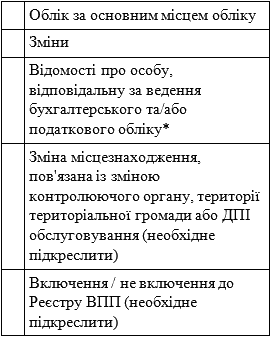 Облік за основним місцем обліку
Зміни
Відомості про особу,
відповідальну за ведення
бухгалтерського та/або
податкового обліку*
Зміна місцезнаходження,
пов'язана із зміною
контролюючого органу, території
територіальної громади або ДПІ
обслуговування (необхідне
підкреслити)
Включення / не включення до
Реєстру ВПП (необхідне
підкреслити)